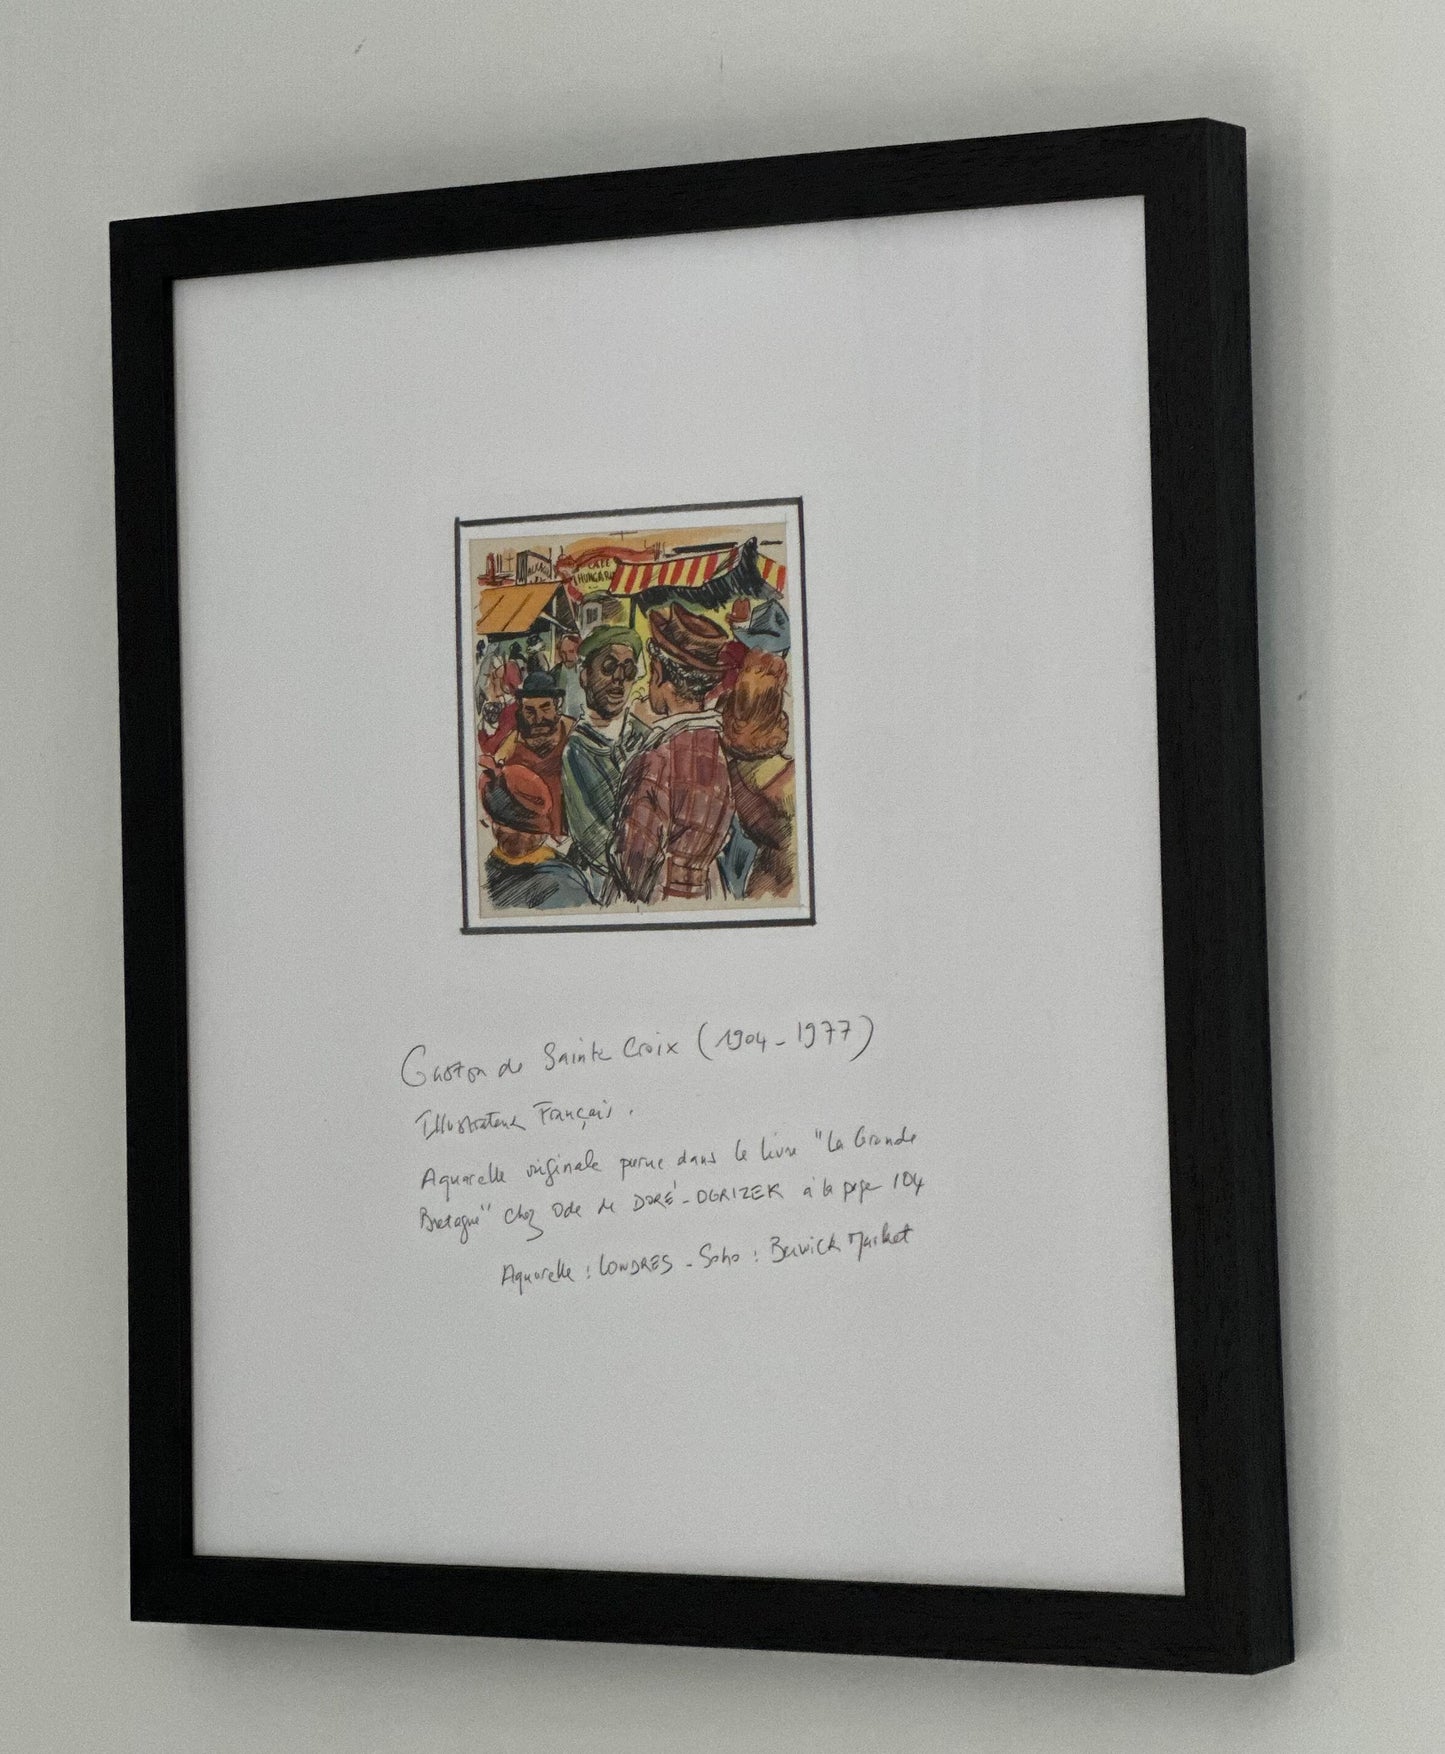 CAFE
HUNGARI
Gaston de Sainte Croix (1904-1977)
Illustrateur Français.
Aquarelle originale parue dans le livre "La Grande
Bretagne" chez Ode de DORÉ-OGRIZEK à la page 104
Aquarelle : LONDRES - Soho : Berwick Market